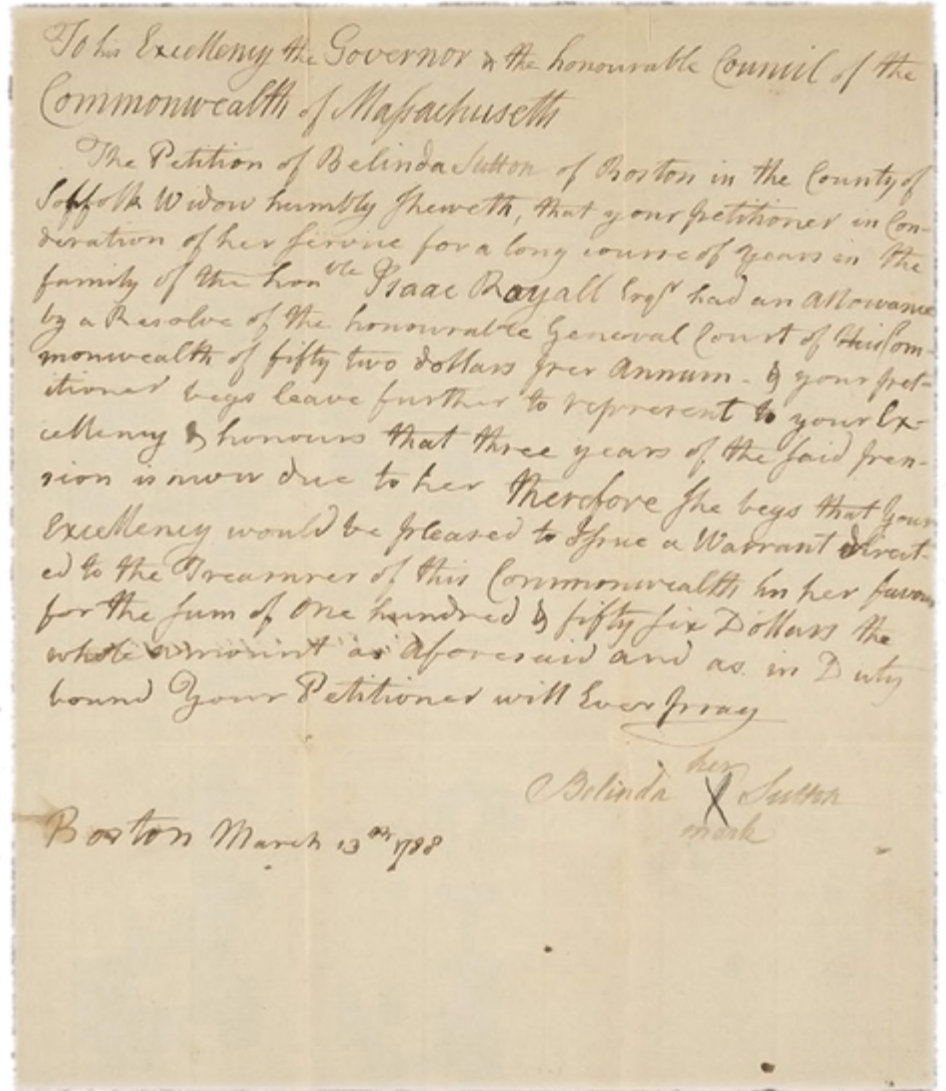 To his Excellency the Governor & the honourable Council of the
Commonwealth of Massachusetts
The Petition of Belinda Sutton of Boston in the County of
Suffolk Widow humbly sheweth, that your petitioner in Con-
deration of her service for a long course of years in the
family of the honble Isaac Royall Esqr had an Allowance
by a Resolve of the honourable General Court of this Com-
monwealth of fifty two dollars per Annum - & your pet-
itioner begs leave further to represent to your Ex-
cellency & honours that three years of the said pen-
sion is now due to her therefore she begs that your
Excellency would be pleased to Issue a Warrant direct-
ed to the Treasurer of this Commonwealth in her favour
for the sum of One hundred & fifty six Dollars the
whole amount as Aforesaid and as in Duty
bound Your Petitioner will Ever pray
her
Belinda X Sutton
mark
Boston March 13th 1788